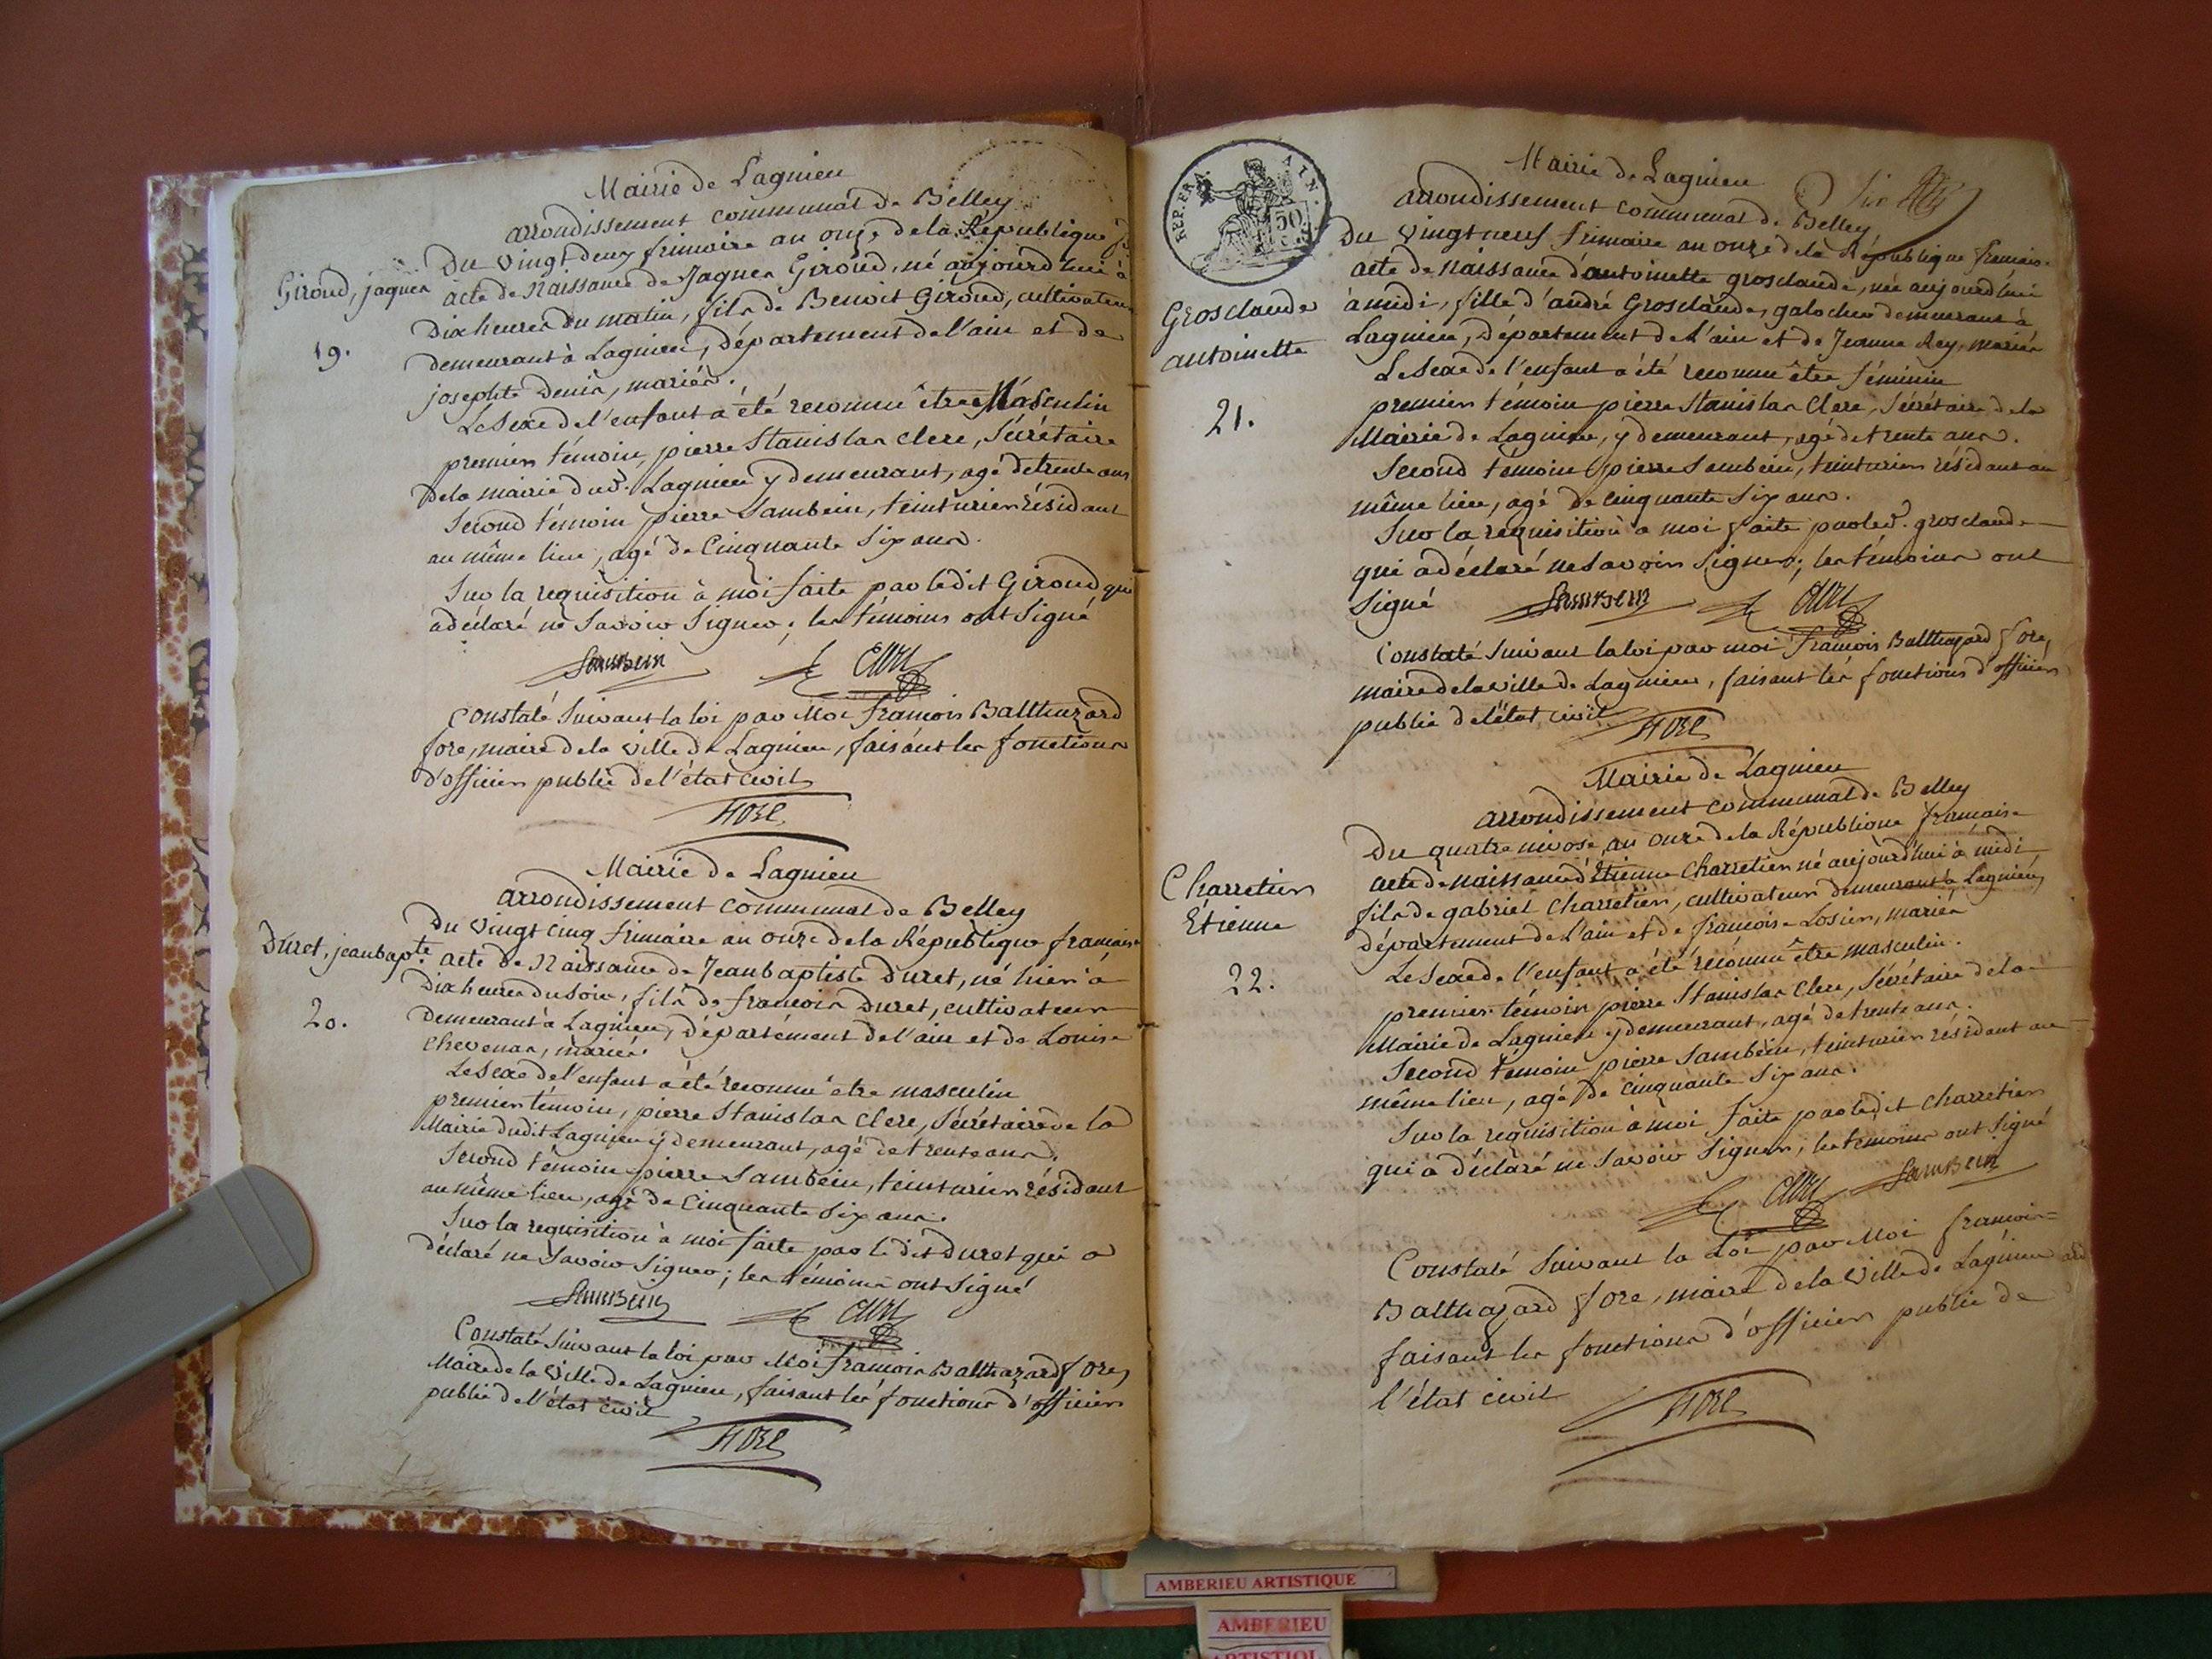 Mairie de Lagnieu
arrondissement communal de Belley
Du vingt deux frimaire an onze de la République
Giroud, jaques
acte de Naissance de Jaques Giroud, né aujourd'hui à
Dix heures du matin, fils de Benoit Giroud, cultivateur
19.
demeurant à Lagnieu, département de l'ain et de
josephte Denis, mariés.
Le Sexe de l'enfant a été reconnu être Masculin
premier témoin, pierre Stanislas Clerc, Sécrétaire
de la mairie dud. Lagnieu y demeurant, agé de trente ans
Second témoin pierre Sambein, teinturier résidant
au même lieu, agé de Cinquante Six ans.
Sur la requisition à moi faite par ledit Giroud qui
a déclaré ne Savoir Signer; les témoins ont Signé
Sambein Clerc
Constaté Suivant la loi par Moi françois Balthazard
fore, maire de la ville de Lagnieu, faisant les fonctions
d'officier public de l'état civil
FORE
Mairie de Lagnieu
arrondissement communal de Belley
Du vingt cinq frimaire an onze de la République française
Duret, jean bapte.
acte de Naissance de Jean baptiste Duret, né hier à
Dix heures du Soir, fils de françois Duret, cultivateur
20.
demeurant à Lagnieu, département de l'ain et de Louise
Chevenas, mariés.
Le Sexe de l'enfant a été reconnu être masculin
premier témoin, pierre Stanislas Clerc, Sécrétaire de la
Mairie dudit Lagnieu y demeurant, agé de trente ans.
Second témoin pierre Sambein, teinturier résidant
au même lieu, agé de Cinquante Six ans.
Sur la requisition à moi faite par le dit Duret qui a
déclaré ne Savoir Signer; les témoins ont Signé
Sambein Clerc
Constaté Suivant la loi par Moi françois Balthazard fore,
Maire de la Ville de Lagnieu, faisant les fonctions d'officier
public de l'état civil
FORE
REP. FRA. AIN. 50
Mairie de Lagnieu
arrondissement communal de Belley
Du Vingt neuf frimaire an onze de la République française
acte de Naissance d'antoinette grosclaude, née aujourd'hui
Grosclaude
antoinette
à midi, fille d'andré Grosclaude, galocher demeurant à
Lagnieu, Département de l'ain et de Jeanne Rey, mariés
Le Sexe de l'enfant a été reconnu être féminin
21.
premier témoin pierre Stanislas Clerc, Sécrétaire de la
Mairie de Lagnieu, y demeurant, agé de trente ans.
Second témoin pierre Sambein, teinturier résidant au
même lieu, agé de cinquante Six ans.
Sur la requisition a moi faite par led. grosclaude
qui a déclaré ne Savoir Signer; les témoins ont
Signé Sambein Clerc
Constaté Suivant la loi par moi françois Balthazard fore,
maire de la ville de Lagnieu, faisant les fonctions d'officier
public de l'état civil
FORE
Mairie de Lagnieu
arrondissement communal de Belley
Du quatre nivose, an onze de la République française
Charretier
Etienne
acte de naissance d'Etienne Charretier né aujourd'hui à midi
fils de gabriel Charretier, cultivateur demeurant à Lagnieu,
département de l'ain et de françoise Losier, mariés
22.
Le Sexe de l'enfant a été reconnu être masculin.
premier témoin pierre Stanislas Clerc, Sécrétaire de la
Mairie de Lagnieu y demeurant, agé de trente ans.
Second témoin pierre Sambein, teinturier résidant au
même lieu, agé de cinquante Six ans.
Sur la requisition à moi faite par ledit Charretier
qui a déclaré ne Savoir Signer, les témoins ont Signé
Clerc Sambein
Constaté Suivant la Loi par Moi françois
Balthazard fore, maire de la Ville de Lagnieu
faisant les fonctions d'officier public de
l'état civil
FORE
AMBERIEU ARTISTIQUE
AMBERIEU